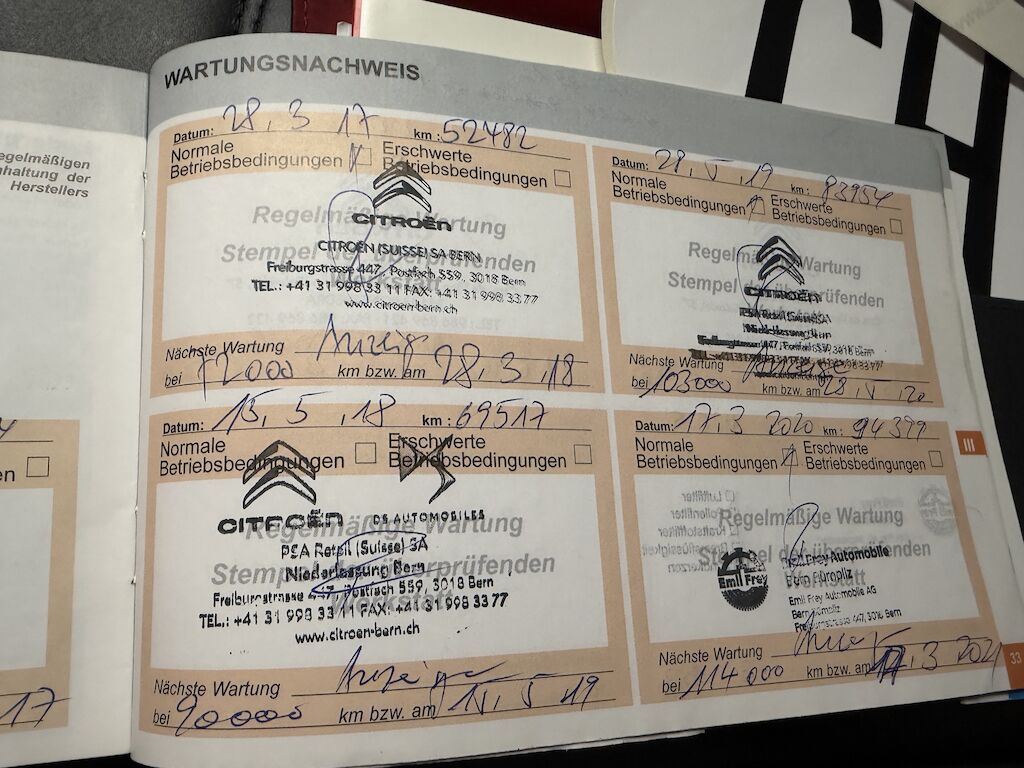 WARTUNGSNACHWEIS
egelmäßigen
nhaltung der
Herstellers
en
17
Datum: 28.3 17 km: 52482
Normale Betriebsbedingungen Erschwerte Betriebsbedingungen
CITROËN
Regelmäßige Wartung
CITROËN (SUISSE) SA BERN
Stempel der überprüfenden
Freiburgstrasse 447, Postfach 559, 3018 Bern
TEL.: +41 31 998 33 11 FAX: +41 31 998 33 77
www.citroen-bern.ch
Nächste Wartung Anzeige
bei 72000 km bzw. am 28.3.18
Datum: 15.5.18 km: 69517
Normale Betriebsbedingungen Erschwerte Betriebsbedingungen
CITROËN DS AUTOMOBILES
Regelmäßige Wartung
PSA Retail (Suisse) SA
Niederlassung Bern
Stempel der überprüfenden
Werkstatt
Freiburgstrasse 447, Postfach 559, 3018 Bern
TEL.: +41 31 998 33 11 FAX: +41 31 998 33 77
www.citroen-bern.ch
Nächste Wartung Anzeige
bei 90000 km bzw. am 15.5 19
Datum: 28.5.19 km: 83954
Normale Betriebsbedingungen Erschwerte Betriebsbedingungen
Regelmäßige Wartung
CITROËN
Stempel der überprüfenden
PSA Retail (Suisse) SA
Niederlassung Bern
Freiburgstrasse 447, Postfach 559, 3018 Bern
TEL.: +41 31 998 33 11 FAX: +41 31 998 33 77
Nächste Wartung Anzeige
bei 103000 km bzw. am 28.5.20
Datum: 17.3 2020 km: 94399
Normale Betriebsbedingungen Erschwerte Betriebsbedingungen
Luftfilter
Pollenfilter
Kraftstofffilter
Regelmäßige Wartung
Stempel der überprüfenden
Werkstatt
Emil Frey
Emil Frey Automobile
Bern Bümpliz
Emil Frey Automobile AG
Bern Bümpliz
Freiburgstrasse 447, 3018 Bern
Nächste Wartung
bei 114000 km bzw. am 17.3 2021
III
33